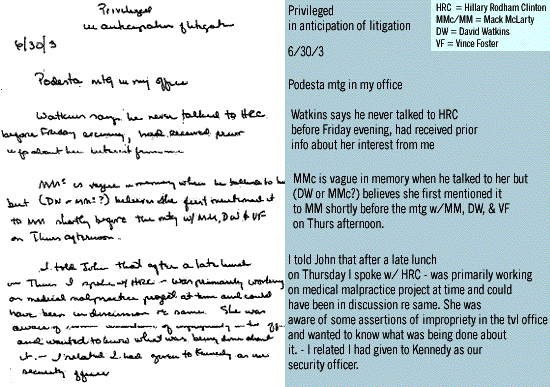 Privileged
in anticipation of litigation
6/30/3
Podesta mtg in my office
Watkins says he never talked to HRC
before Friday evening, had received prior
info about her interest from me
MMc is vague in memory when he talked to he
but (DW or MMc?) believes she first mentioned it
to MM shortly before the mtg w/ MM, DW & VF
on Thurs afternoon.
I told John that after a late lunch
on Thurs I spoke w/ HRC - was primarily working
on medical malpractice project at time and could
have been in discussion re same. She was
aware of of impropriety
and wanted to know what was being done about
it. - I related I had given to Kennedy as our
security officer
HRC = Hillary Rodham Clinton
MMc/MM = Mack McLarty
DW = David Watkins
VF = Vince Foster
Privileged
in anticipation of litigation
6/30/3
Podesta mtg in my office
Watkins says he never talked to HRC
before Friday evening, had received prior
info about her interest from me
MMc is vague in memory when he talked to her but
(DW or MMc?) believes she first mentioned it
to MM shortly before the mtg w/MM, DW, & VF
on Thurs afternoon.
I told John that after a late lunch
on Thursday I spoke w/ HRC - was primarily working
on medical malpractice project at time and could
have been in discussion re same. She was
aware of some assertions of impropriety in the tvl office
and wanted to know what was being done about
it. - I related I had given to Kennedy as our
security officer.